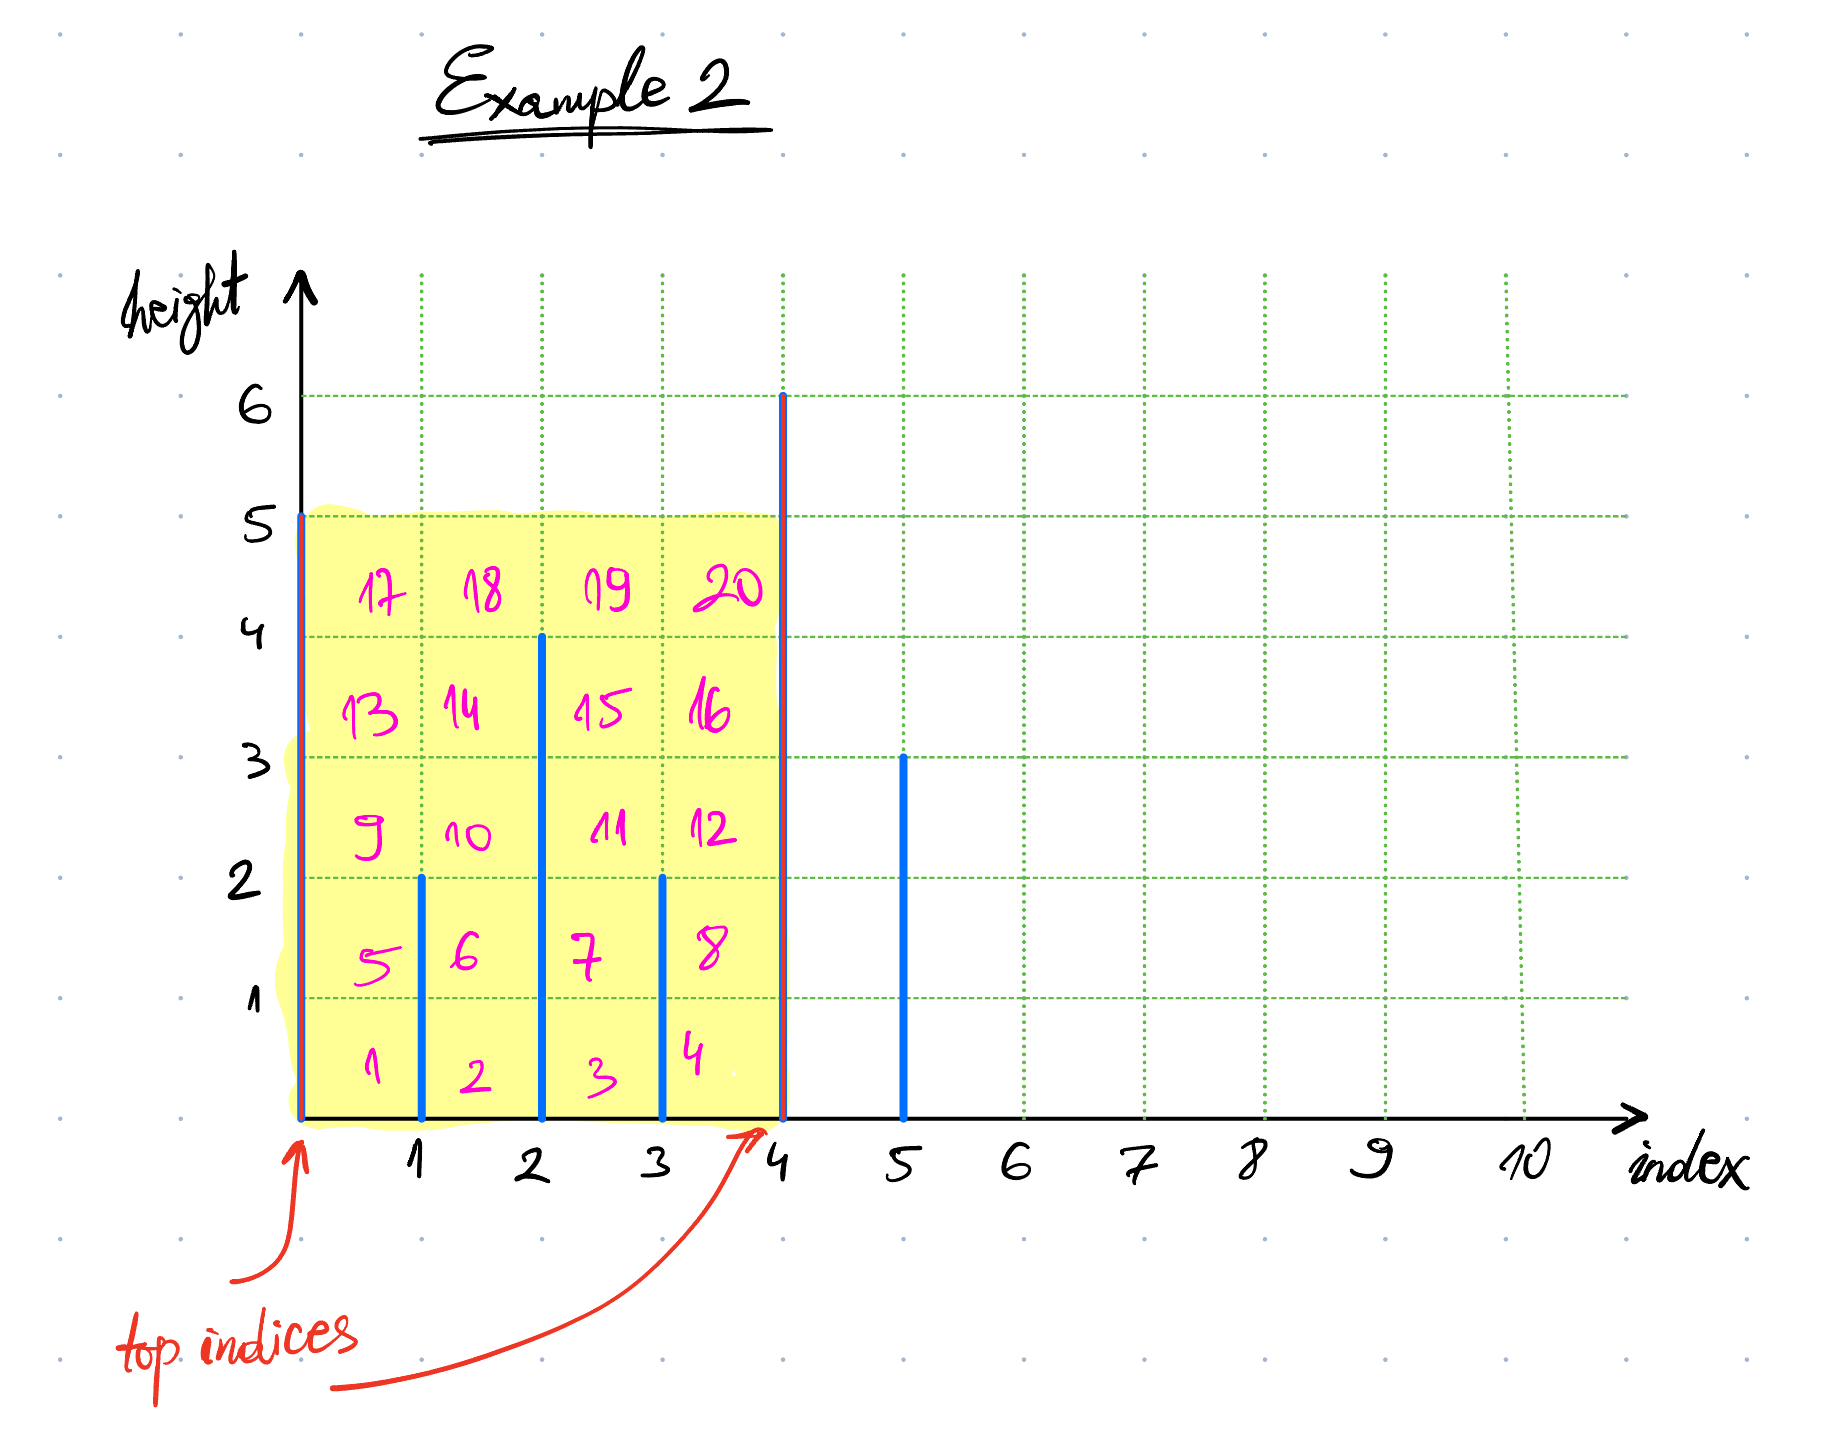 Example 2
height
6
5
17 18 19 20
4
13 14 15 16
3
9 10 11 12
2
5 6 7 8
1
1 2 3 4
1 2 3 4 5 6 7 8 9 10 index
top indices